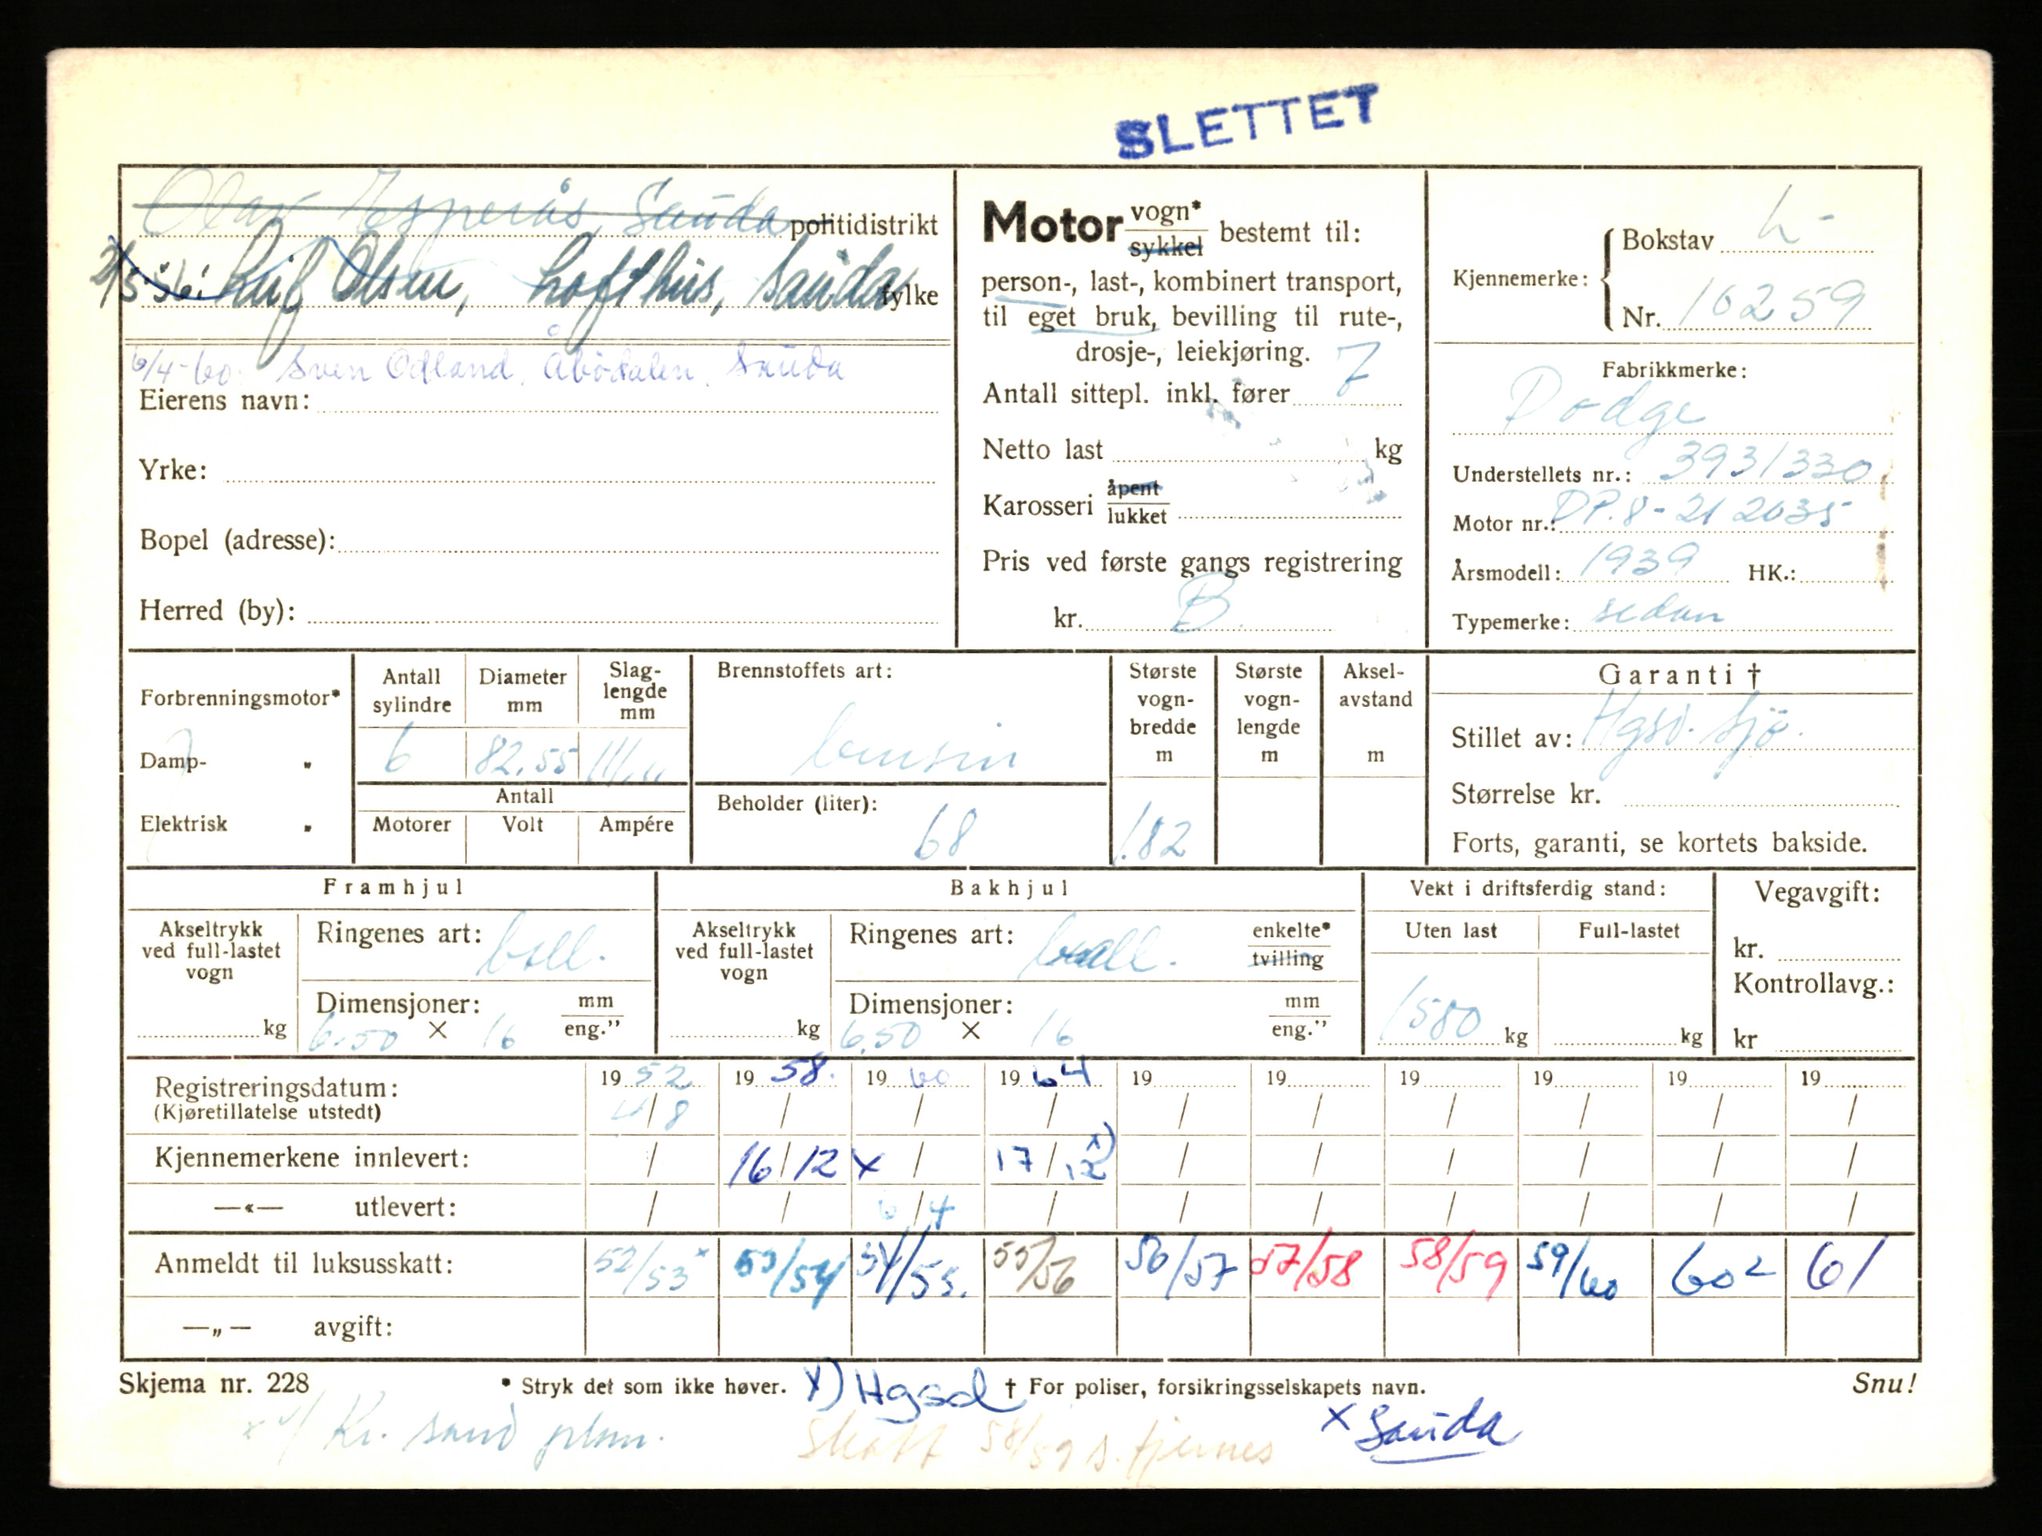 SLETTET
Olav Espenås, Sauda politidistrikt
2/5 56: Leif Olsen, Lofthus, Sauda fylke
6/4-60: Sven Odland, Åbødalen, Sauda
Eierens navn:
Yrke:
Bopel (adresse):
Herred (by):
Motor vogn* sykkel bestemt til:
person-, last-, kombinert transport,
til eget bruk, bevilling til rute-,
drosje-, leiekjøring.
Antall sittepl. inkl. fører 7
Netto last kg
Karosseri åpent lukket
Pris ved første gangs registrering
kr. B
Kjennemerke: Bokstav L-
Nr. 16259
Fabrikkmerke:
Dodge
Understellets nr.: 3931330
Motor nr.: DP.8-212035
Årsmodell: 1939 HK.:
Typemerke: sedan
Forbrenningsmotor*
Damp- „
Elektrisk „
Antall sylindre Diameter mm Slag-lengde mm
6 82,55
Antall
Motorer Volt Ampére
Brennstoffets art:
bensin
Beholder (liter):
68
Største vogn-bredde m
1.82
Største vogn-lengde m
Aksel-avstand m
Garanti †
Stillet av: Hgsd. Sjø.
Størrelse kr.
Forts, garanti, se kortets bakside.
Framhjul
Akseltrykk ved full-lastet vogn
kg
Ringenes art: ball.
Dimensjoner: mm eng."
6.50 × 16
Bakhjul
Akseltrykk ved full-lastet vogn
kg
Ringenes art: ball. enkelte* tvilling
Dimensjoner: mm eng."
6.50 × 16
Vekt i driftsferdig stand:
Uten last Full-lastet
1580 kg kg
Vegavgift:
kr.
Kontrollavg.:
kr
Registreringsdatum: 19 52 19 58. 19 60 19 64 19 19 19 19 19 19
(Kjøretillatelse utstedt) / 8 / / / / / / / / /
Kjennemerkene innlevert: / 16/12 x / 17/12 x) / / / / / /
—«— utlevert: / / 6/4 / / / / / / /
Anmeldt til luksusskatt: 52/53 x 53/54 54/55. 55/56 56/57 57/58 58/59 59/60 60 2 61
—„— avgift:
Skjema nr. 228 * Stryk det som ikke høver. x) Hgsd † For poliser, forsikringsselskapets navn. Snu!
Kr. sand
Skatt 58/59 s. fjernes
x Sauda